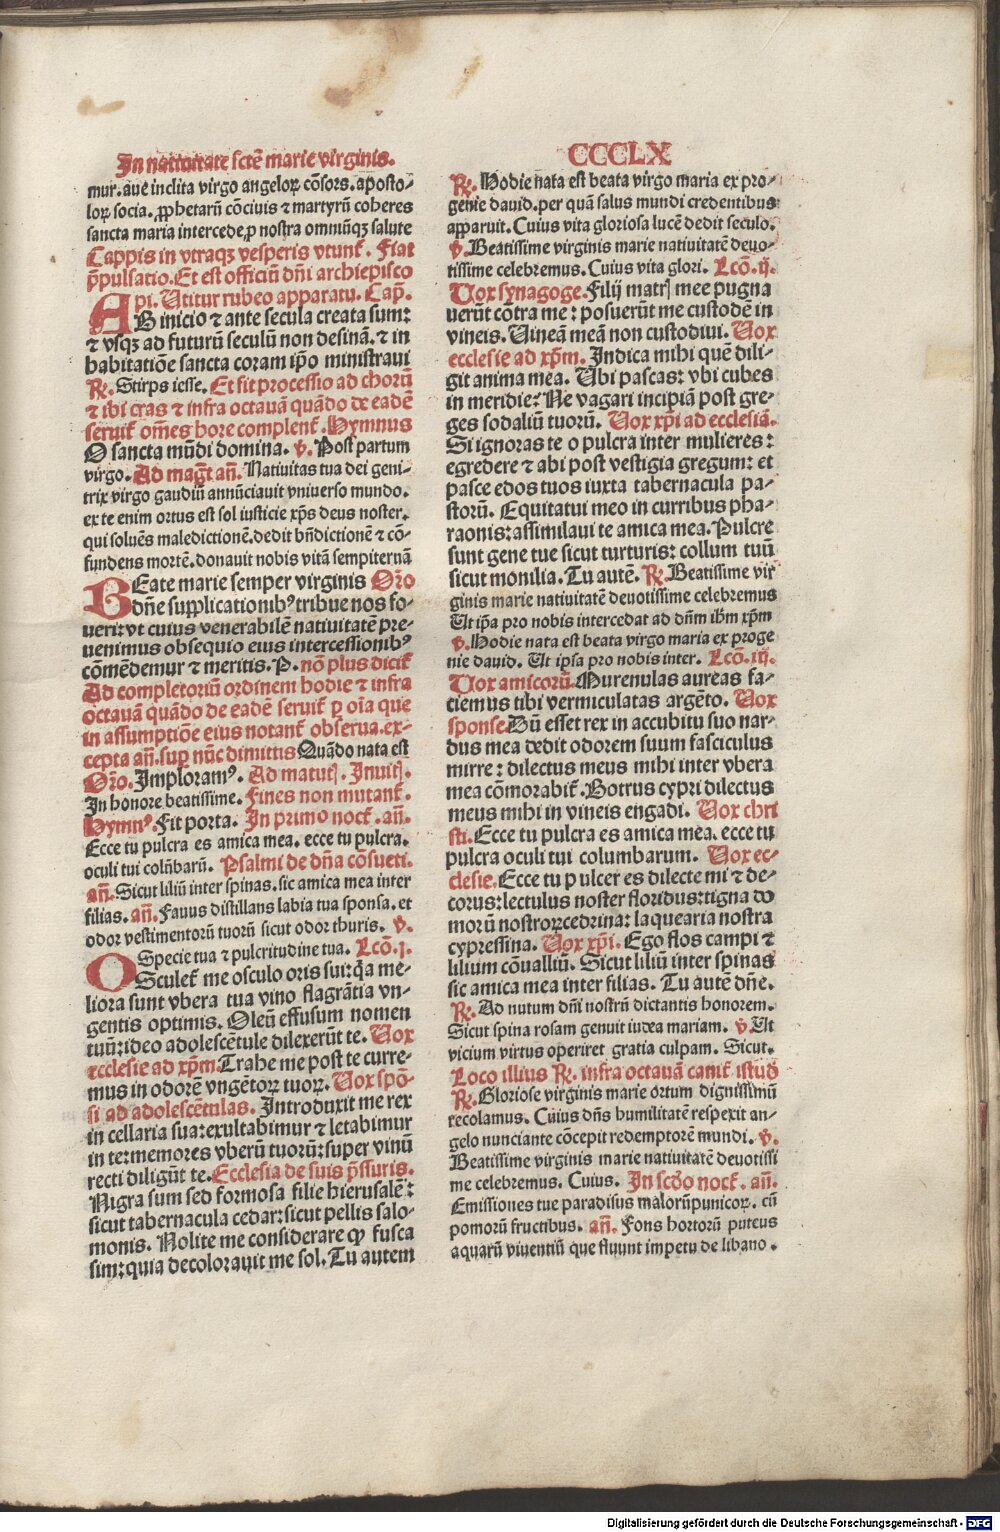 In natiuitate scte᷈ marie virginis.
mur. aue inclita virgo angeloꝝ co᷈sors. aposto-
loꝝ socia. ꝓphetaru᷈ co᷈ciuis ⁊ martyru᷈ coheres
sancta maria intercede ꝓ nostra omniu᷈qꝫ salute
Cappis in vtraqꝫ vesperis vtunt᷑. Fiat
p᷈pulsatio. Et est officiu᷈ dn᷈i archiepisco
pi. Utitur rubeo apparatu. Cap᷈.
AB inicio ⁊ ante secula creata sum:
⁊ vsqꝫ ad futuru᷈ seculu᷈ non desina᷈. ⁊ in
habitatio᷈e sancta coram ip᷈o ministraui
℞. Stirps iesse. Et fit processio ad choru᷈
⁊ ibi cras ⁊ infra octaua᷈ qua᷈do de eade᷈
seruit᷑ om᷈es hore complent᷑. Hymnus
O sancta mu᷈di domina. ℣. Post partum
virgo. Ad mag᷈t an᷈. Natiuitas tua dei geni-
trix virgo gaudiu᷈ annu᷈ciauit vniuerso mundo.
ex te enim ortus est sol iusticie xp᷈s deus noster.
qui solue᷈s maledictione᷈. dedit bn᷈dictione᷈ ⁊ co᷈-
fundens morte᷈. donauit nobis vita᷈ sempiterna᷈
BEate marie semper virginis Or᷈o
dn᷈e supplicationibꝰ tribue nos fo-
ueri: vt cuius venerabile᷈ natiuitate᷈ pre-
uenimus obsequio eius intercessionibꝰ
co᷈me᷈demur ⁊ meritis. P. no᷈ plus dicit᷑
Ad completoriu᷈ ordinem hodie ⁊ infra
octaua᷈ qua᷈do de eade᷈ seruit᷑ ꝑ oi᷈a que
in assumptio᷈e eius notant᷑ obserua. ex-
cepta an᷈. suꝑ nu᷈c dimittis Qua᷈do nata est
Or᷈o. Imploramꝰ. Ad matutꝭ. Inuitꝭ.
In honore beatissime. Fines non mutant᷑.
Hymnꝰ. Fit porta. In primo noct᷑. an᷈.
Ecce tu pulcra es amica mea. ecce tu pulcra.
oculi tui colu᷈baru᷈. Psalmi de dn᷈a co᷈sueti.
an᷈. Sicut liliu᷈ inter spinas. sic amica mea inter
filias. an᷈. Fauus distillans labia tua sponsa. et
odor vestimentoru᷈ tuoru᷈ sicut odor thuris. ℣.
Specie tua ⁊ pulcritudine tua. Lco᷈. j.
OSculet᷑ me osculo oris sui: q᷈a me-
liora sunt vbera tua vino flagra᷈tia vn-
gentis optimis. Oleu᷈ effusum nomen
tuu᷈: ideo adolesce᷈tule dilexeru᷈t te. Uox
ecclesie ad xp᷈m. Trahe me post te curre-
mus in odore᷈ vnge᷈toꝝ tuoꝝ. Uox spo᷈-
si ad adolesce᷈tulas. Introduxit me rex
in cellaria sua: exultabimur ⁊ letabimur
in te: memores vberu᷈ tuoru᷈: super vinu᷈
recti diligu᷈t te. Ecclesia de suis p᷈ssuris.
Nigra sum sed formosa filie hierusale᷈:
sicut tabernacula cedar: sicut pellis salo-
monis. Nolite me considerare ꝙ fusca
sim: quia decolorauit me sol. Tu autem
CCCLX
℞. Hodie nata est beata virgo maria ex pro-
genie dauid. per qua᷈ salus mundi credentibus
apparuit. Cuius vita gloriosa luce᷈ dedit seculo.
℣. Beatissime virginis marie natiuitate᷈ deuo-
tissime celebremus. Cuius vita glori. Lco᷈. ij.
Uox synagoge. Filij matrꝭ mee pugna
ueru᷈t co᷈tra me: posueru᷈t me custode᷈ in
vineis. Uinea᷈ mea᷈ non custodiui. Uox
ecclesie ad xp᷈m. Indica mihi que᷈ dili-
git anima mea. Ubi pascas: vbi cubes
in meridie: Ne vagari incipia᷈ post gre-
ges sodaliu᷈ tuoru᷈. Uox xp᷈i ad ecclesia᷈.
Si ignoras te o pulcra inter mulieres:
egredere ⁊ abi post vestigia gregum: et
pasce edos tuos iuxta tabernacula pa-
storu᷈. Equitatui meo in curribus pha-
raonis: assimilaui te amica mea. Pulcre
sunt gene tue sicut turturis: collum tuu᷈
sicut monilia. Tu aute᷈. ℞. Beatissime vir
ginis marie natiuitate᷈ deuotissime celebremus
Ut ip᷈a pro nobis intercedat ad dn᷈m ih᷈m xp᷈m
℣. Hodie nata est beata virgo maria ex proge
nie dauid. Ut ipsa pro nobis inter. Lco᷈. iij.
Uox amicoru᷈. Murenulas aureas fa-
ciemus tibi vermiculatas arge᷈to. Uox
sponse. Du᷈ esset rex in accubitu suo nar-
dus mea dedit odorem suum fasciculus
mirre: dilectus meus mihi inter vbera
mea co᷈morabit᷑. Botrus cypri dilectus
meus mihi in vineis engadi. Uox chri
sti. Ecce tu pulcra es amica mea. ecce tu
pulcra oculi tui columbarum. Uox ec-
clesie. Ecce tu pulcer es dilecte mi ⁊ de-
corus: lectulus noster floridus: tigna do
moru᷈ nostroꝝ cedrina: laquearia nostra
cypressina. Uox xp᷈i. Ego flos campi ⁊
lilium co᷈ualliu᷈. Sicut liliu᷈ inter spinas
sic amica mea inter filias. Tu aute᷈ dn᷈e.
℞. Ad nutum dn᷈i nostru᷈ dictantis honorem.
Sicut spina rosam genuit iudea mariam. ℣ Ut
vicium virtus operiret gratia culpam. Sicut.
Loco illius ℞. infra octaua᷈ cant᷑ istud
℞. Gloriose virginis marie ortum dignissimu᷈
recolamus. Cuius dn᷈s humilitate᷈ respexit an-
gelo nunciante co᷈cepit redemptore᷈ mundi. ℣.
Beatissime virginis marie natiuitate᷈ deuotissi
me celebremus. Cuius. In scd᷈o noct᷑. an᷈.
Emissiones tue paradisus maloru᷈ punicoꝝ. cu᷈
pomoru᷈ fructibus. an᷈. Fons hortoru᷈ puteus
aquaru᷈ viuentiu᷈ que fluunt impetu de libano.
Digitalisierung gefördert durch die Deutsche Forschungsgemeinschaft - DFG